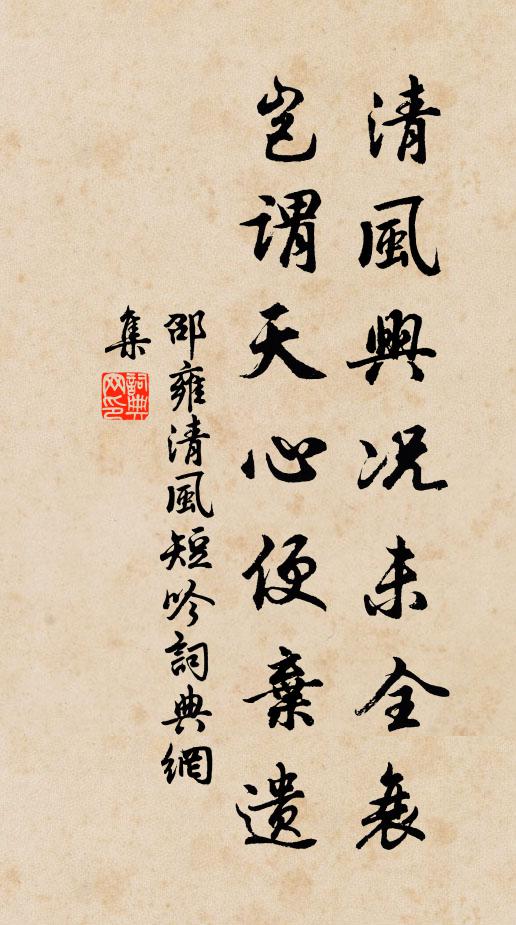 清風興况未全衰
豈謂天心便棄遺
邵雍清風短吟詞典網
集
詞典网印